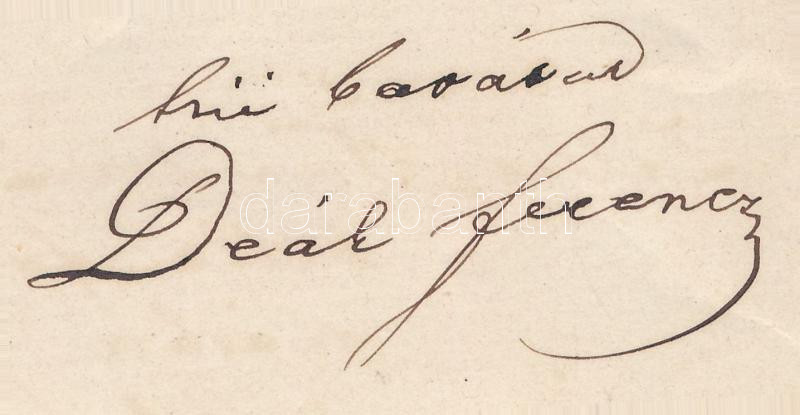 hű barátod
Deák Ferencz
darabanth